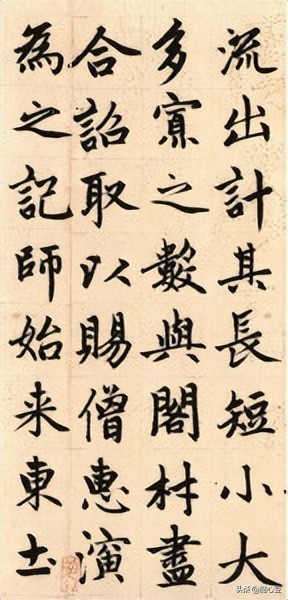 流出計其長短小大
多寡之數與閣材盡
合詔取以賜僧惠演
為之記師始来東土
头条@醒心豆